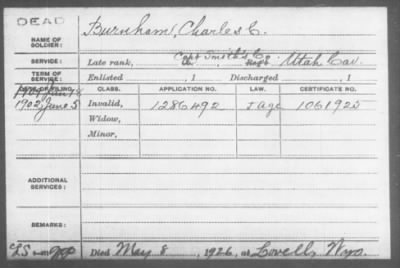 DEAD
NAME OF SOLDIER: Burnham, Charles C.
SERVICE: Late rank, Capt Smith's Co., Utah Cav.
TERM OF SERVICE: Enlisted , 1 Discharged , 1
DATE OF FILING. CLASS. APPLICATION NO. LAW. CERTIFICATE NO.
1902 June 5 Invalid, 1286492 J Age 1061925
Widow,
Minor,
ADDITIONAL SERVICES:
REMARKS:
Died May 8, 1926, at Lovell, Wyo.